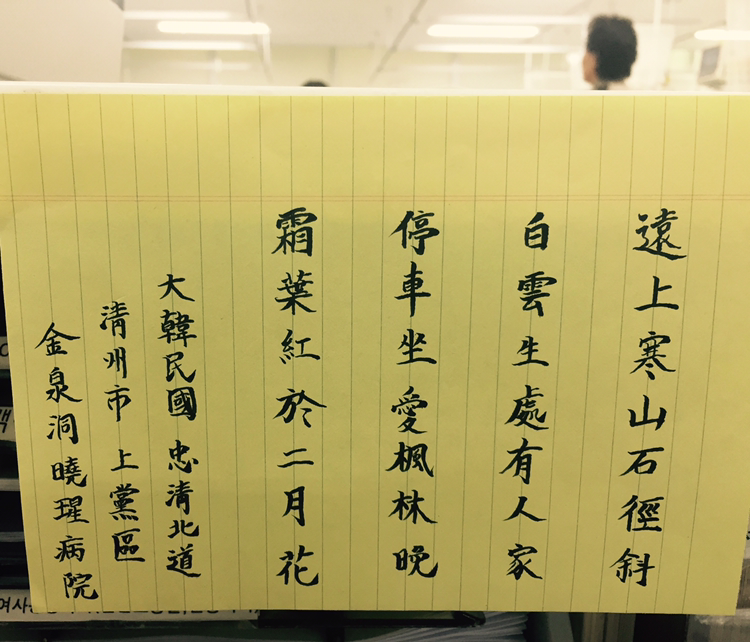 遠上寒山石徑斜
白雲生處有人家
停車坐愛楓林晚
霜葉紅於二月花
大韓民國 忠清北道
清州市 上黨區
金泉洞 曉瑆病院